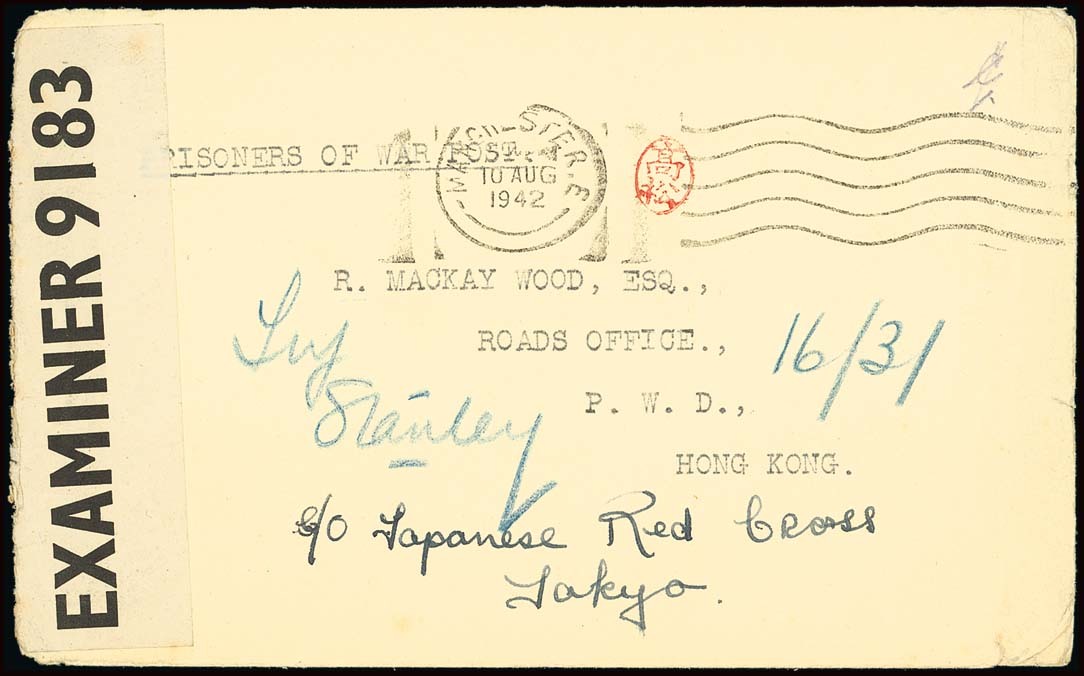 EXAMINER 9183
PRISONERS OF WAR POST.
MANCHESTER.E
10 AUG
1942
R. MACKAY WOOD, ESQ.,
ROADS OFFICE.,
16/31
P. W. D.,
Stanley
HONG KONG.
c/o Japanese Red Cross
Tokyo.